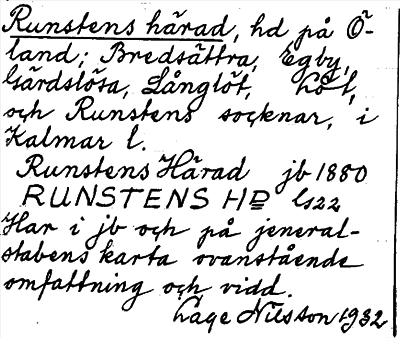 Runstens härad, hd på Ö-
land; Bredsättra, Egby,
Gärdslösa, Långlöt, Löt,
och Runstens socknar, i
Kalmar l.
Runstens Härad jb 1880
RUNSTENS HD Ls22
Har i jb och på jeneral-
stabens karta ovanstående
omfattning och vidd.
Lage Nilsson 1932